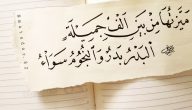 مَيَّزتُهَا مِنْ بَيْنِ أَلْفِ جَمِيلَةٍ
البَدْرُ بَدْرٌ وَالنُّجُومُ سَوَاءُ